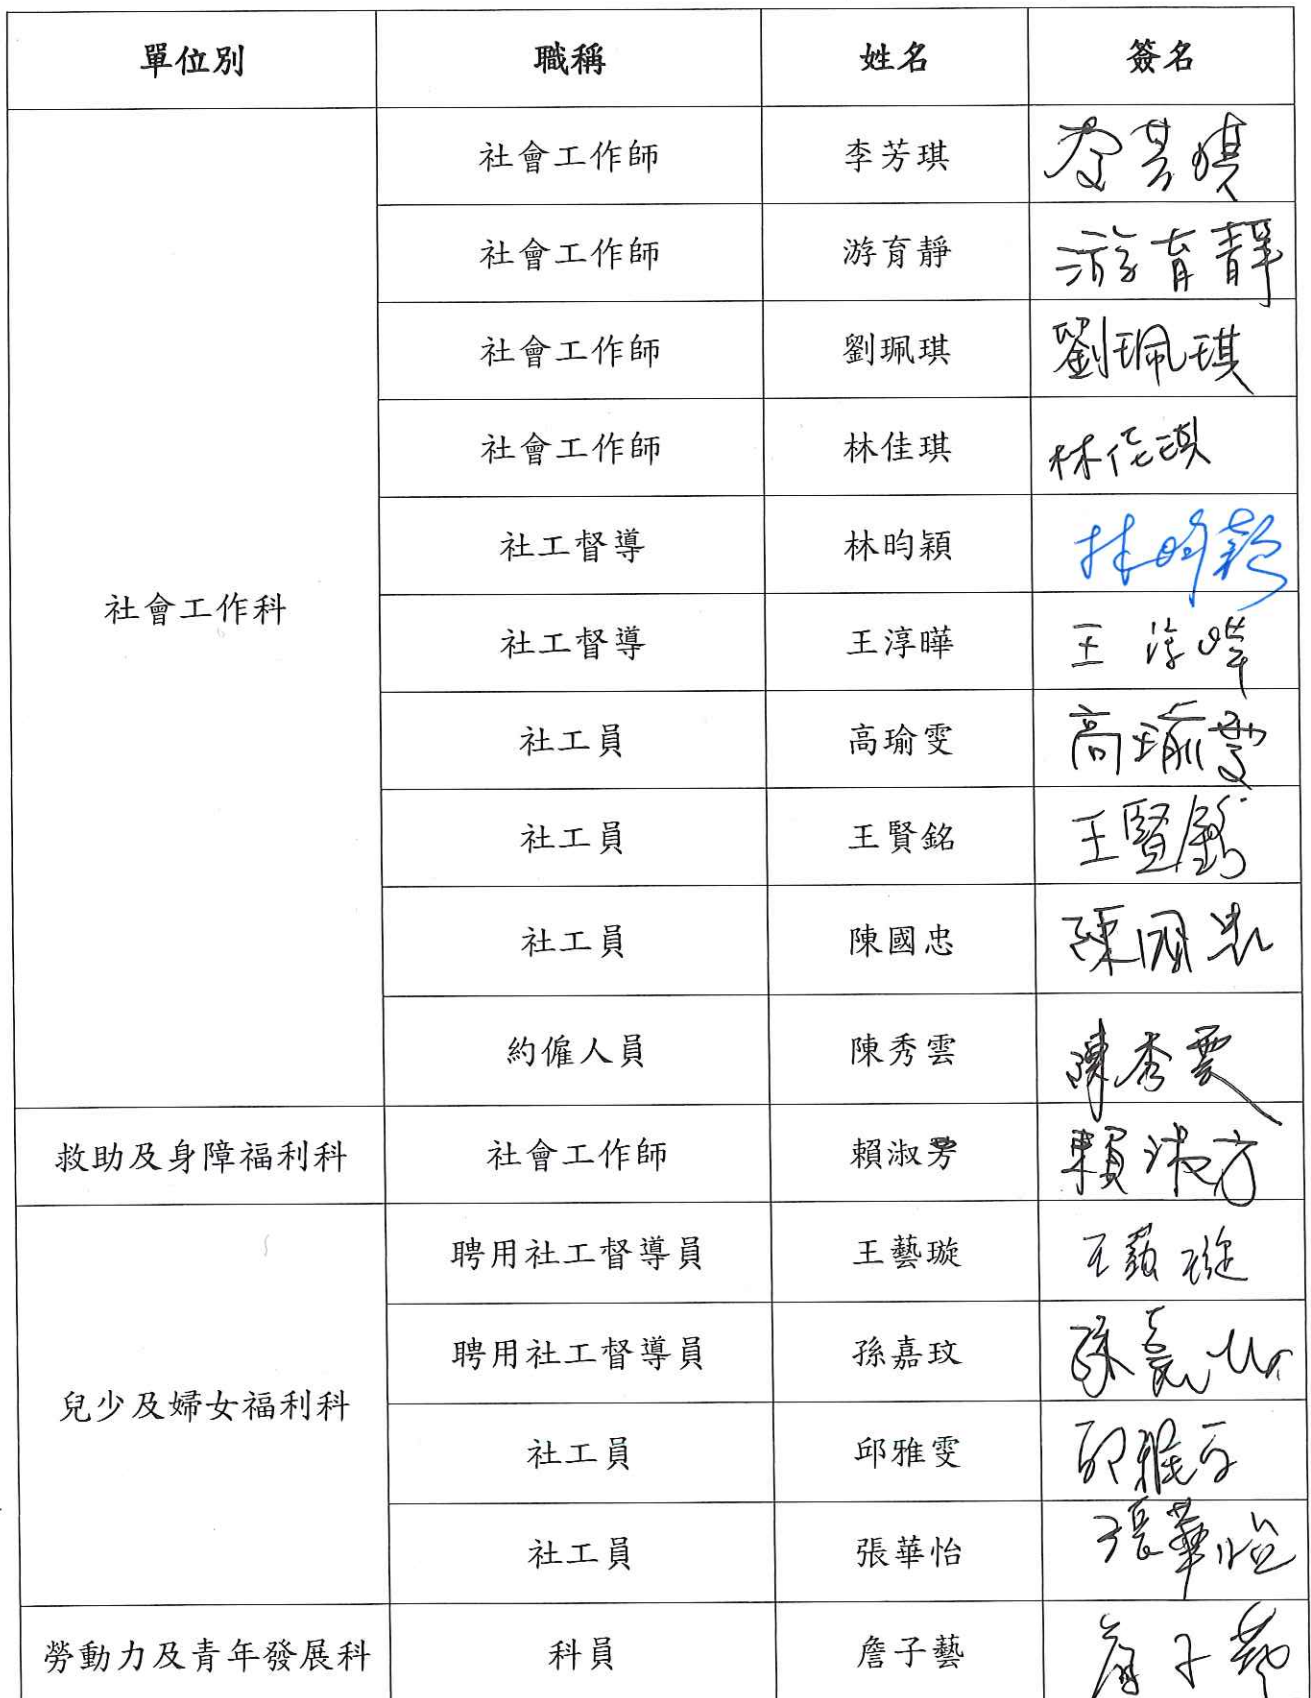 單位別 職稱 姓名 簽名
社會工作師 李芳琪 李芳琪
社會工作師 游育靜 游育靜
社會工作師 劉珮琪 劉珮琪
社會工作師 林佳琪 林佳琪
社工督導 林昀穎 林昀穎
社會工作科
社工督導 王淳曄 王淳曄
社工員 高瑜雯 高瑜雯
社工員 王賢銘 王賢銘
社工員 陳國忠 陳國忠
約僱人員 陳秀雲 陳秀雲
救助及身障福利科 社會工作師 賴淑芳 賴淑芳
聘用社工督導員 王藝璇 王藝璇
聘用社工督導員 孫嘉玟 孫嘉玟
兒少及婦女福利科
社工員 邱雅雯 邱雅雯
社工員 張華怡 張華怡
勞動力及青年發展科 科員 詹子藝 詹子藝